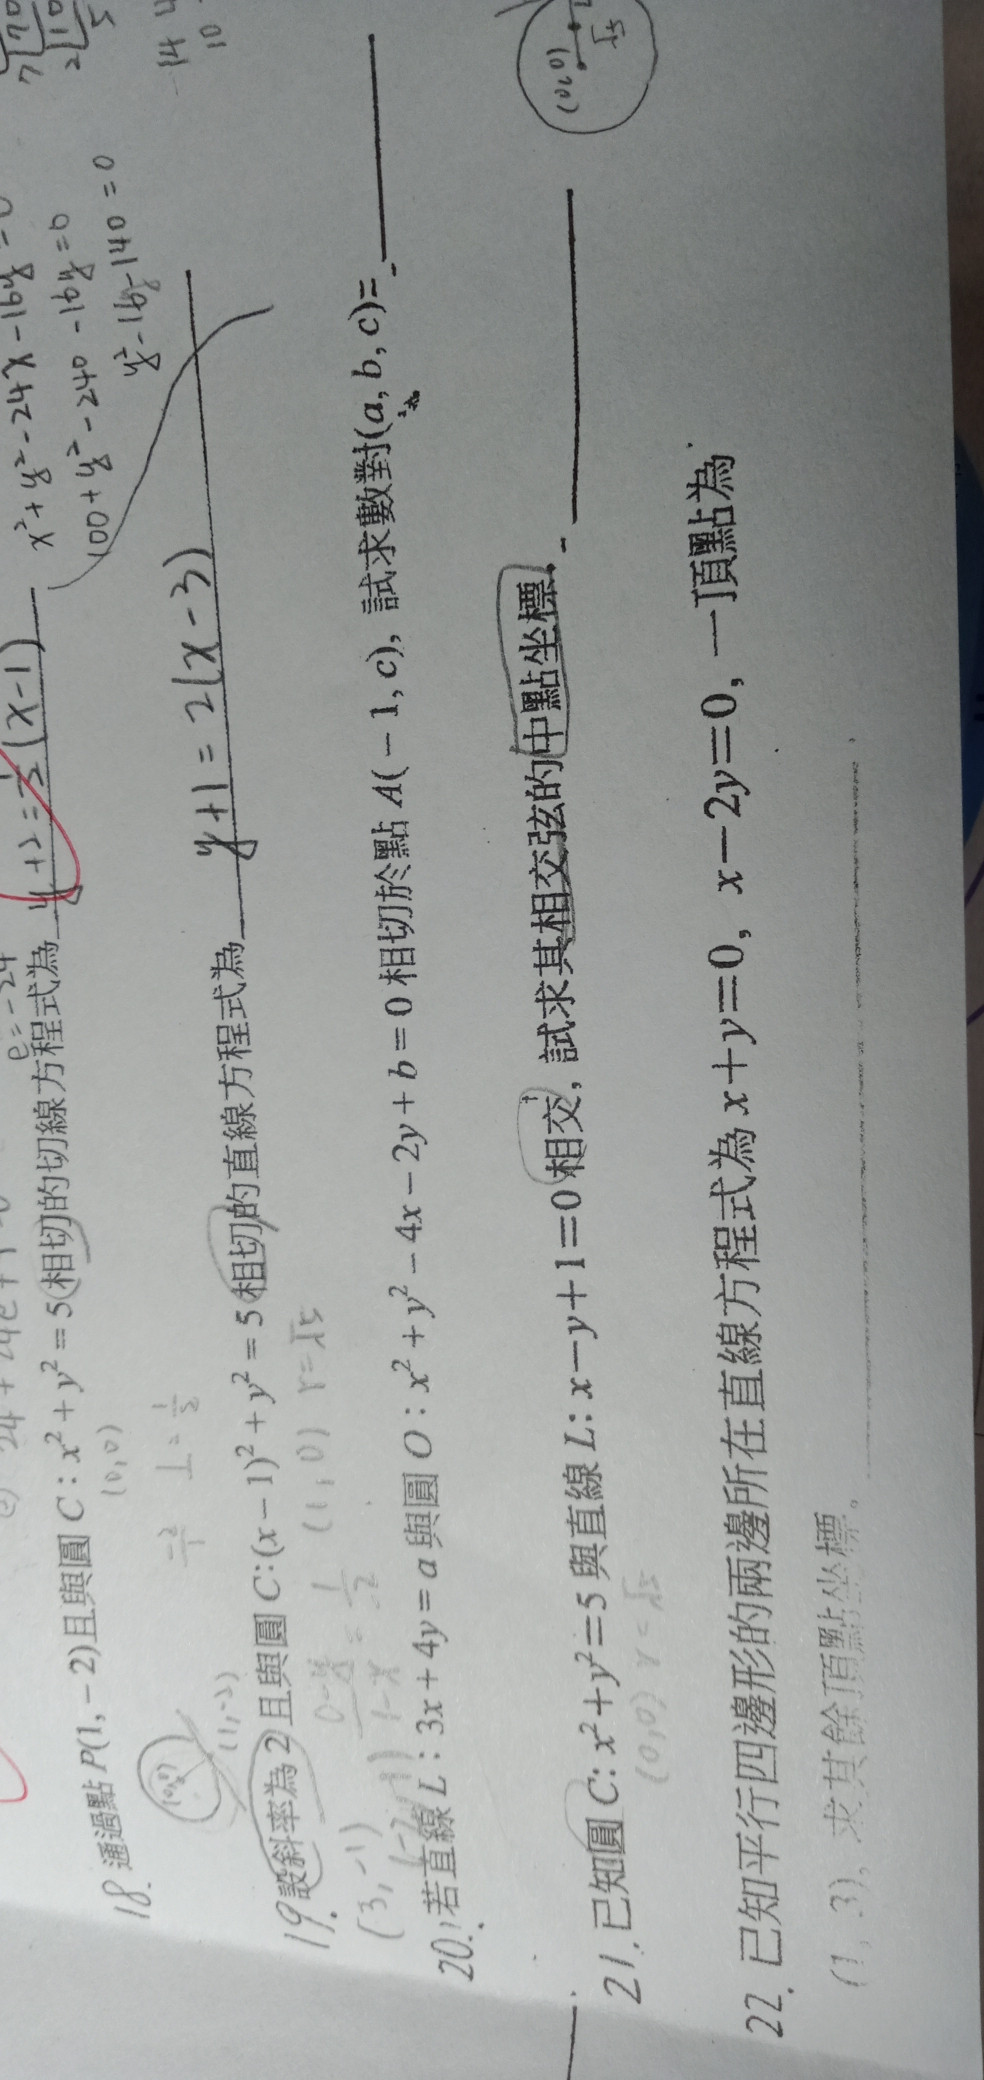 7 2
14
10
(0,0) √5
x²+y²-24x-16y=0
100+y²-240-16y=0
y²-16y-140=0
18. 通過點 P(1, -2)且與圓 C : x² + y² = 5 相切的切線方程式為 y+2=½(x-1)
(0,0)
(0,0) (1,-2)
19. 設斜率為 2 且與圓 C:(x - 1)² + y² = 5 相切的直線方程式為 y+1=2(x-3)
(1,0) r=√5
(3,-1)
20. 若直線 L : 3x + 4y = a 與圓 O : x² + y² - 4x - 2y + b = 0 相切於點 A( - 1, c), 試求數對(a, b, c)=
21. 已知圓 C: x²+y²=5 與直線 L: x-y+1=0 相交, 試求其相交弦的中點坐標
(0,0) r=√5
22. 已知平行四邊形的兩邊所在直線方程式為 x+y=0, x-2y=0, 一頂點為
(1, 3), 求其餘頂點坐標。